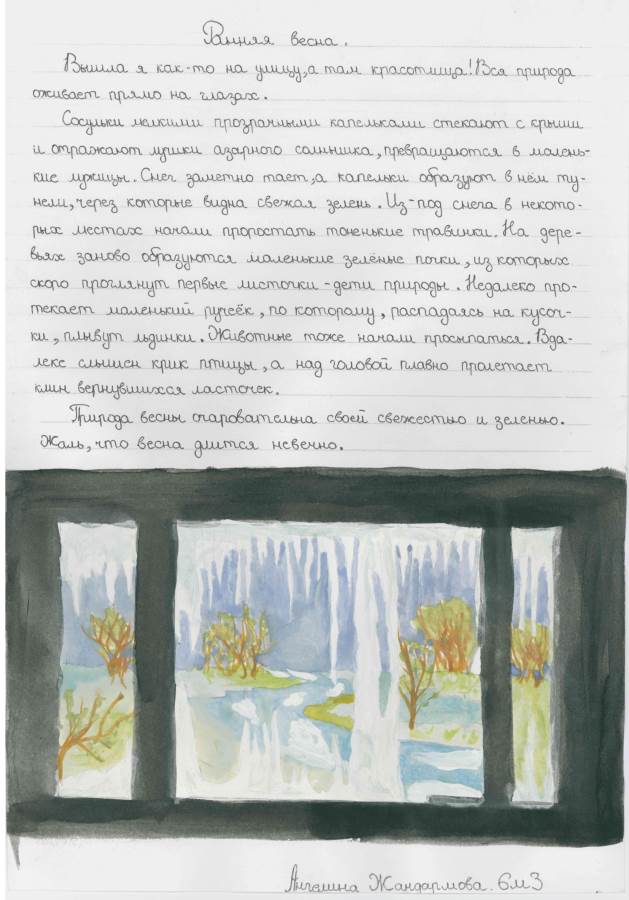 Ранняя весна.
Вышла я как-то на улицу, а там красотища! Вся природа
оживает прямо на глазах.
Сосульки мелкими прозрачными капельками стекают с крыши
и отражают лучики озарного солнышка, превращаются в малень-
кие лужицы. Снег заметно тает, а капельки образуют в нём ту-
нели, через которые видна свежая зелень. Из-под снега в некото-
рых местах начали проростать тоненькие травинки. На дере-
вьях заново образуются маленькие зелёные почки, из которых
скоро проглянут первые листочки - дети природы. Недалеко про-
текает маленький ручеёк, по которому, распадаясь на кусоч-
ки, плывут льдинки. Животные тоже начали просыпаться. Вда-
леке слышен крик птицы, а над головой плавно пролетает
клин вернувшихся ласточек.
Природа весны очаровательна своей свежестью и зеленью.
Жаль, что весна длится невечно.
Ангелина Жандармова. 6м3